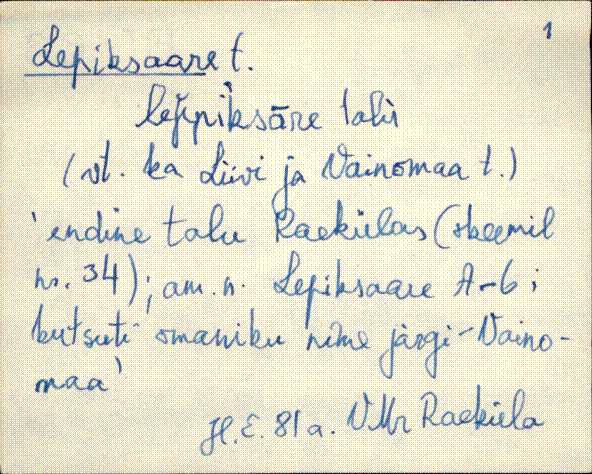 1
Lepiksaare t.
lepiksāre talu
(vt. ka Liivi ja Vainomaa t.)
'endine talu Raekülas (skeemil
nr. 34); am. n. Lepiksaare A-6;
kutsuti omaniku nime järgi - Vaino-
maa'
H.E. 81 a. VMr Raeküla